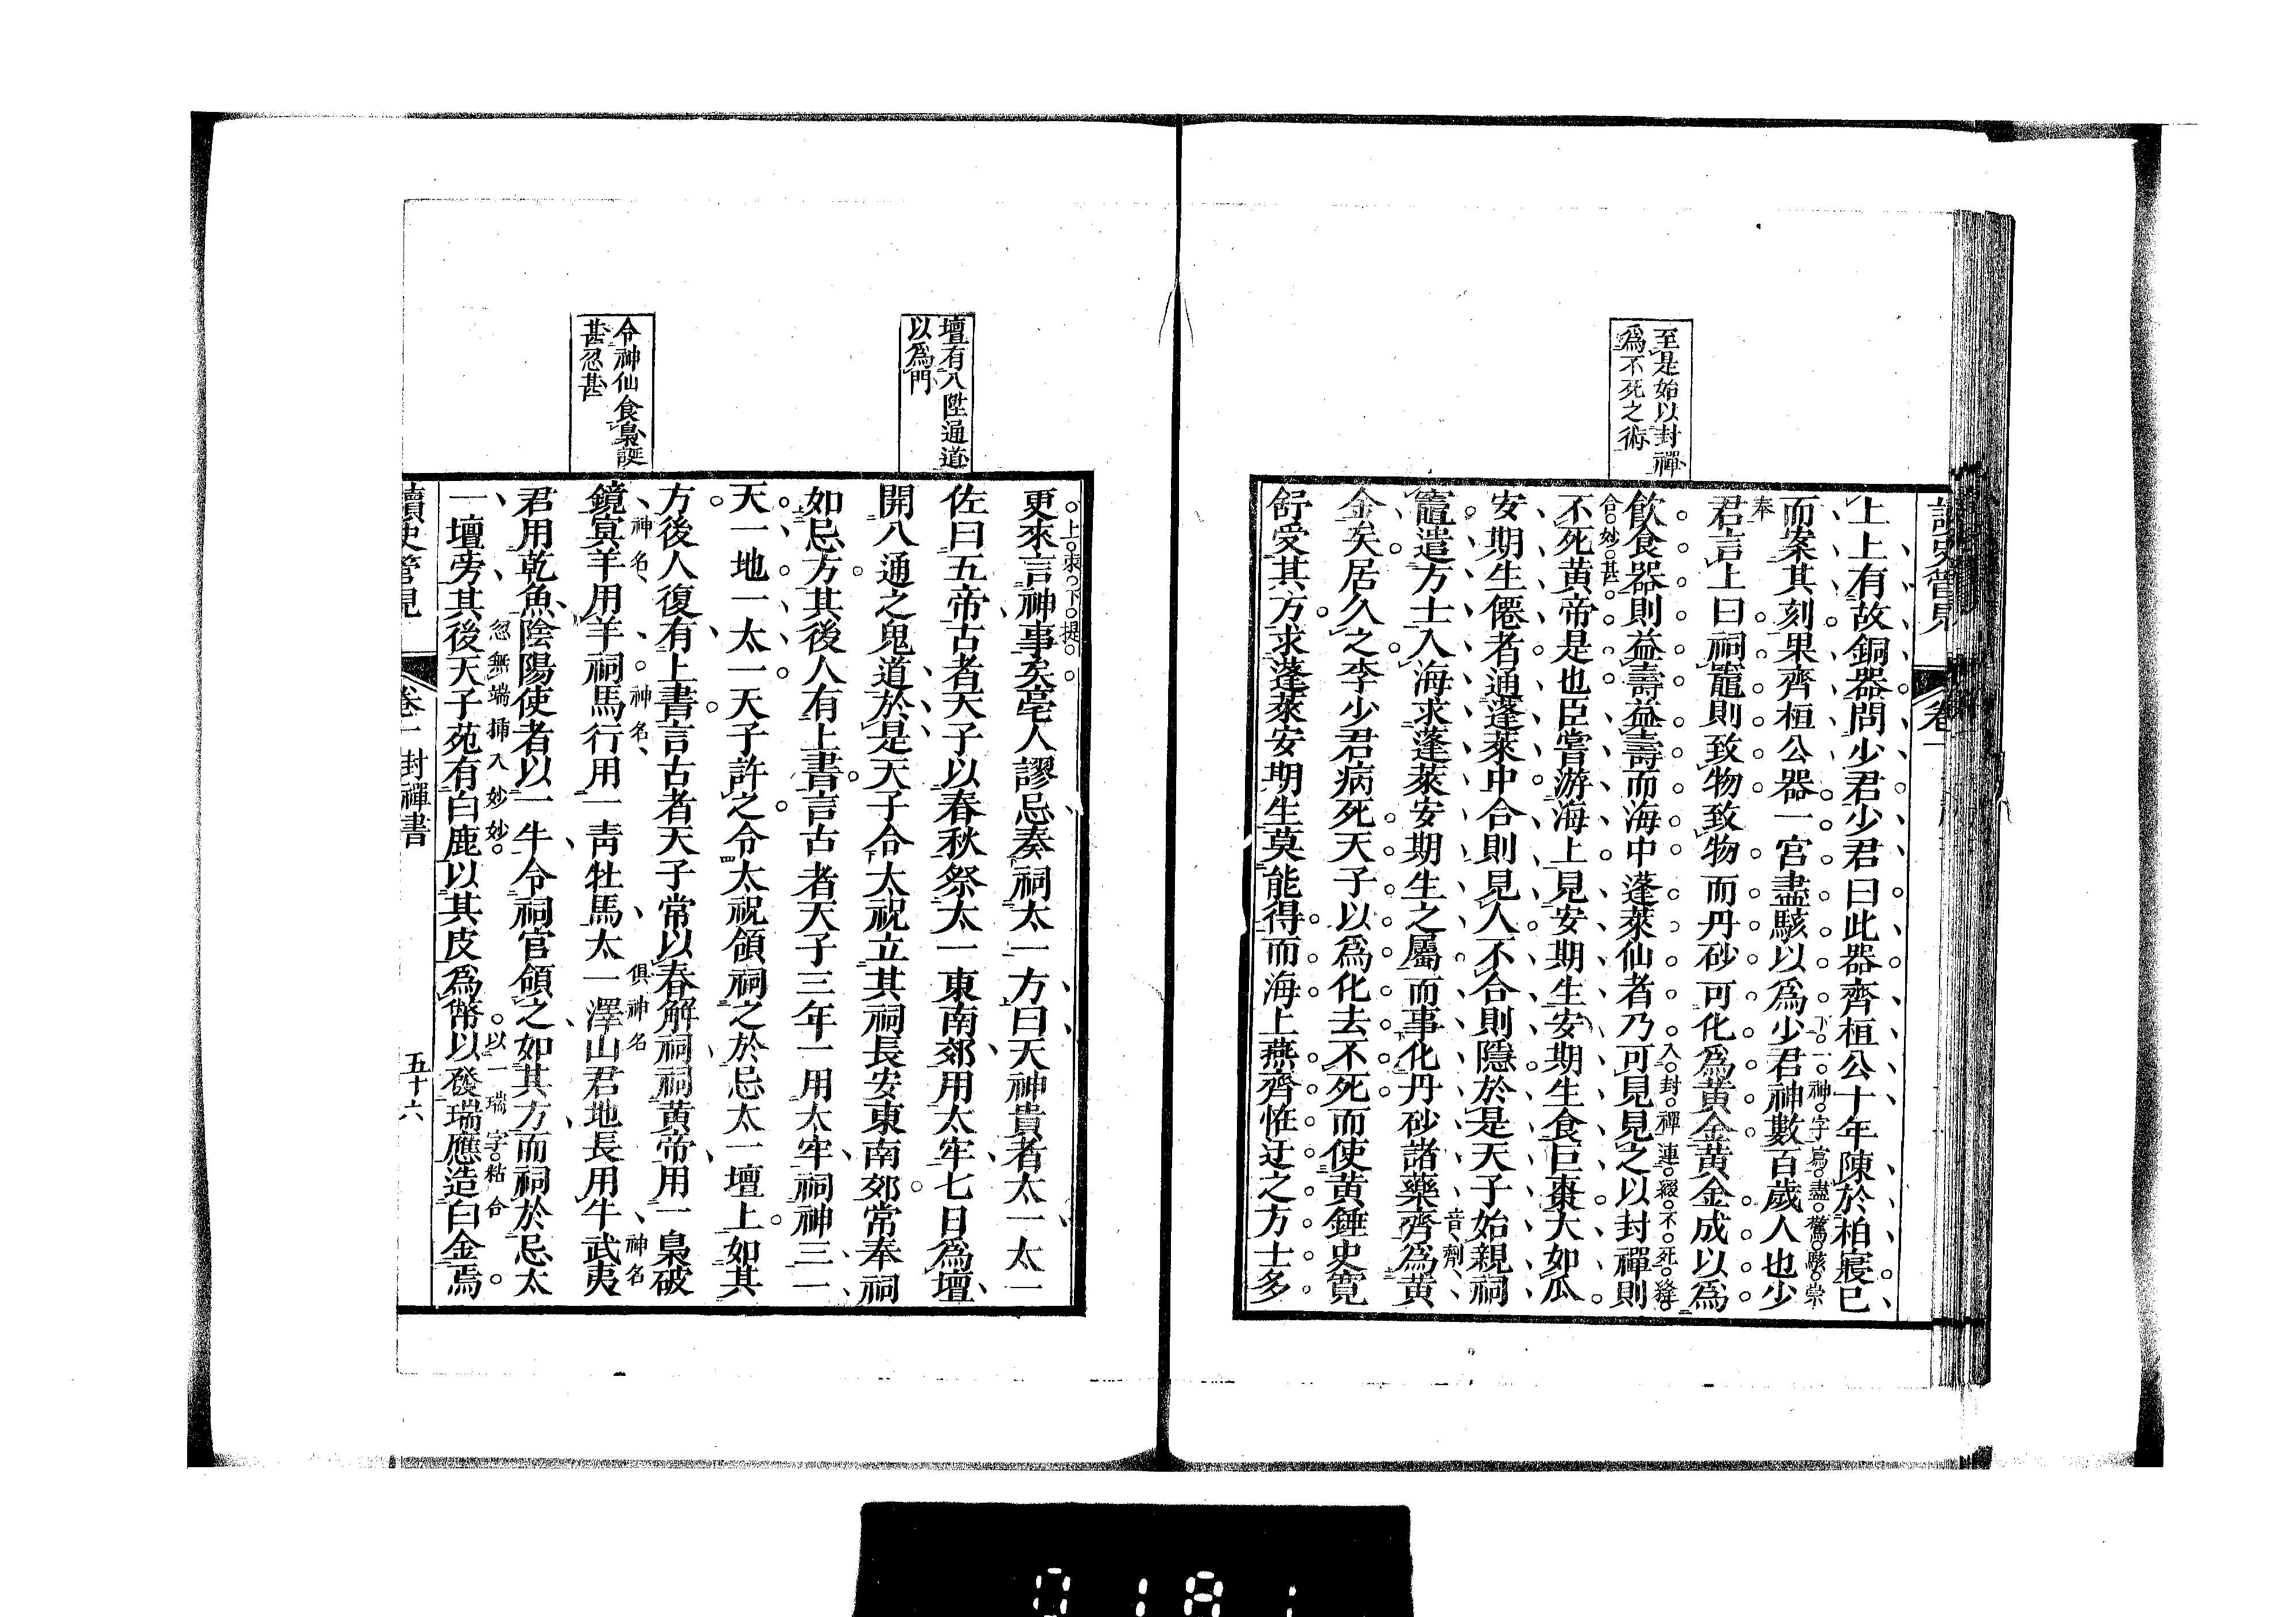 讀史管見
卷一
至是始以封禪
爲不死之術
上上有故銅器問少君少君曰此器齊桓公十年陳於柏寢已
下一神字寫盡驚駭崇
奉
而案其刻果齊桓公器一宮盡駭以爲少君神數百歲人也少
君言上曰祠竈則致物致物而丹砂可化爲黃金黃金成以爲
入封禪連綴不死縫
合妙甚
飲食器則益壽益壽而海中蓬萊仙者乃可見見之以封禪則
不死黃帝是也臣嘗游海上見安期生安期生食巨棗大如瓜
安期生僊者通蓬萊中合則見人不合則隱於是天子始親祠
竈遣方士入海求蓬萊安期生之屬而事化丹砂諸藥齊爲黃
音劑
金矣居久之李少君病死天子以爲化去不死而使黃錘史寬
舒受其方求蓬萊安期生莫能得而海上燕齊怪迂之方士多
壇有八陛通道
以爲門
令神仙食梟誕
甚忍甚
上束下提
更來言神事矣亳人謬忌奏祠太一方曰天神貴者太一太一
佐曰五帝古者天子以春秋祭太一東南郊用太牢七日爲壇
開八通之鬼道於是天子令太祝立其祠長安東南郊常奉祠
如忌方其後人有上書言古者天子三年一用太牢祠神三一
天一地一太一天子許之令太祝領祠之於忌太一壇上如其
方後人復有上書言古者天子常以春解祠祠黃帝用一梟破
神名 神名 俱神名 神名
鏡冥羊用羊祠馬行用一青牡馬太一澤山君地長用牛武夷
君用乾魚陰陽使者以一牛令祠官領之如其方而祠於忌太
忽無端插入妙妙 以一瑞字粘合
一壇旁其後天子苑有白鹿以其皮爲幣以發瑞應造白金焉
讀史管見 卷一 封禪書 五十六